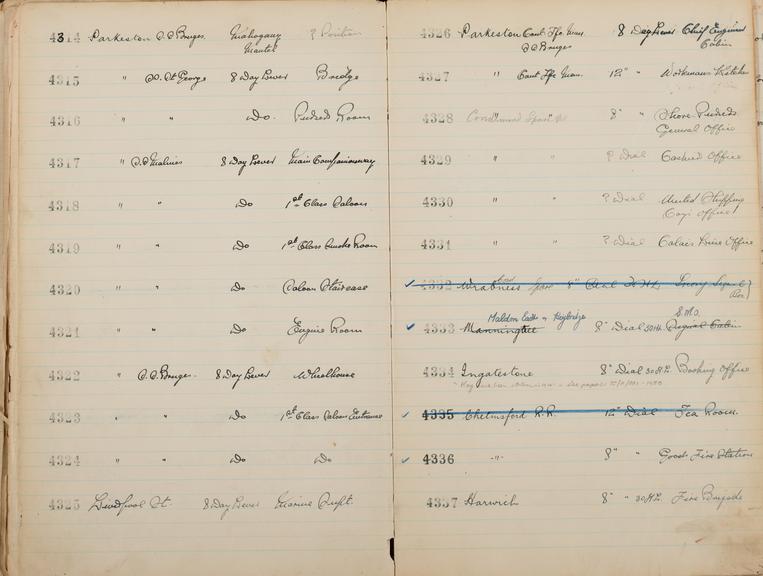 4314 Parkeston S.S. Bruges. Mahogany Mantel ? Position
4315 " S.S. St George 8 Day Lever Bridge
4316 " " Do. Pursers Room
4317 " S.S. Malines 8 Day Lever Main Companionway
4318 " " Do 1st Class Saloon
4319 " " Do 1st Class Smoke Room
4320 " " Do Saloon Staircase
4321 " " Do Engine Room
4322 " S.S. Bruges. 8 Day Lever Wheelhouse
4323 " " Do 1st Class Saloon Entrance
4324 " " Do Do
4325 Liverpool St. 8 Day Lever Marine Supt.
4326 Parkeston Cont. Tfc. Man. S.S. Bruges 8 Day Lever Chief Engineer Cabin
4327 " Cont. Tfc. Man. 12" "
4328 Condemned 8" " Shore Pursers General Office
4329 " " ? Dial Cashier Office
4330 " " ? Dial United Shipping Coys Office
4331 " " ? Dial Calais Line Office
4332 Wrabness Spare 8" Dial
Maldon East S.M.O.
4333 Manningtree 8" Dial 30 Hr. Signal Cabin
4334 Ingatestone 8" Dial 30 Hr. Booking Office
4335 Chelmsford R.R. 12" Dial Tea Room.
4336 " 8" " Goods Fire Station
4337 Harwich 8" " 30 Hr. Fire Brigade